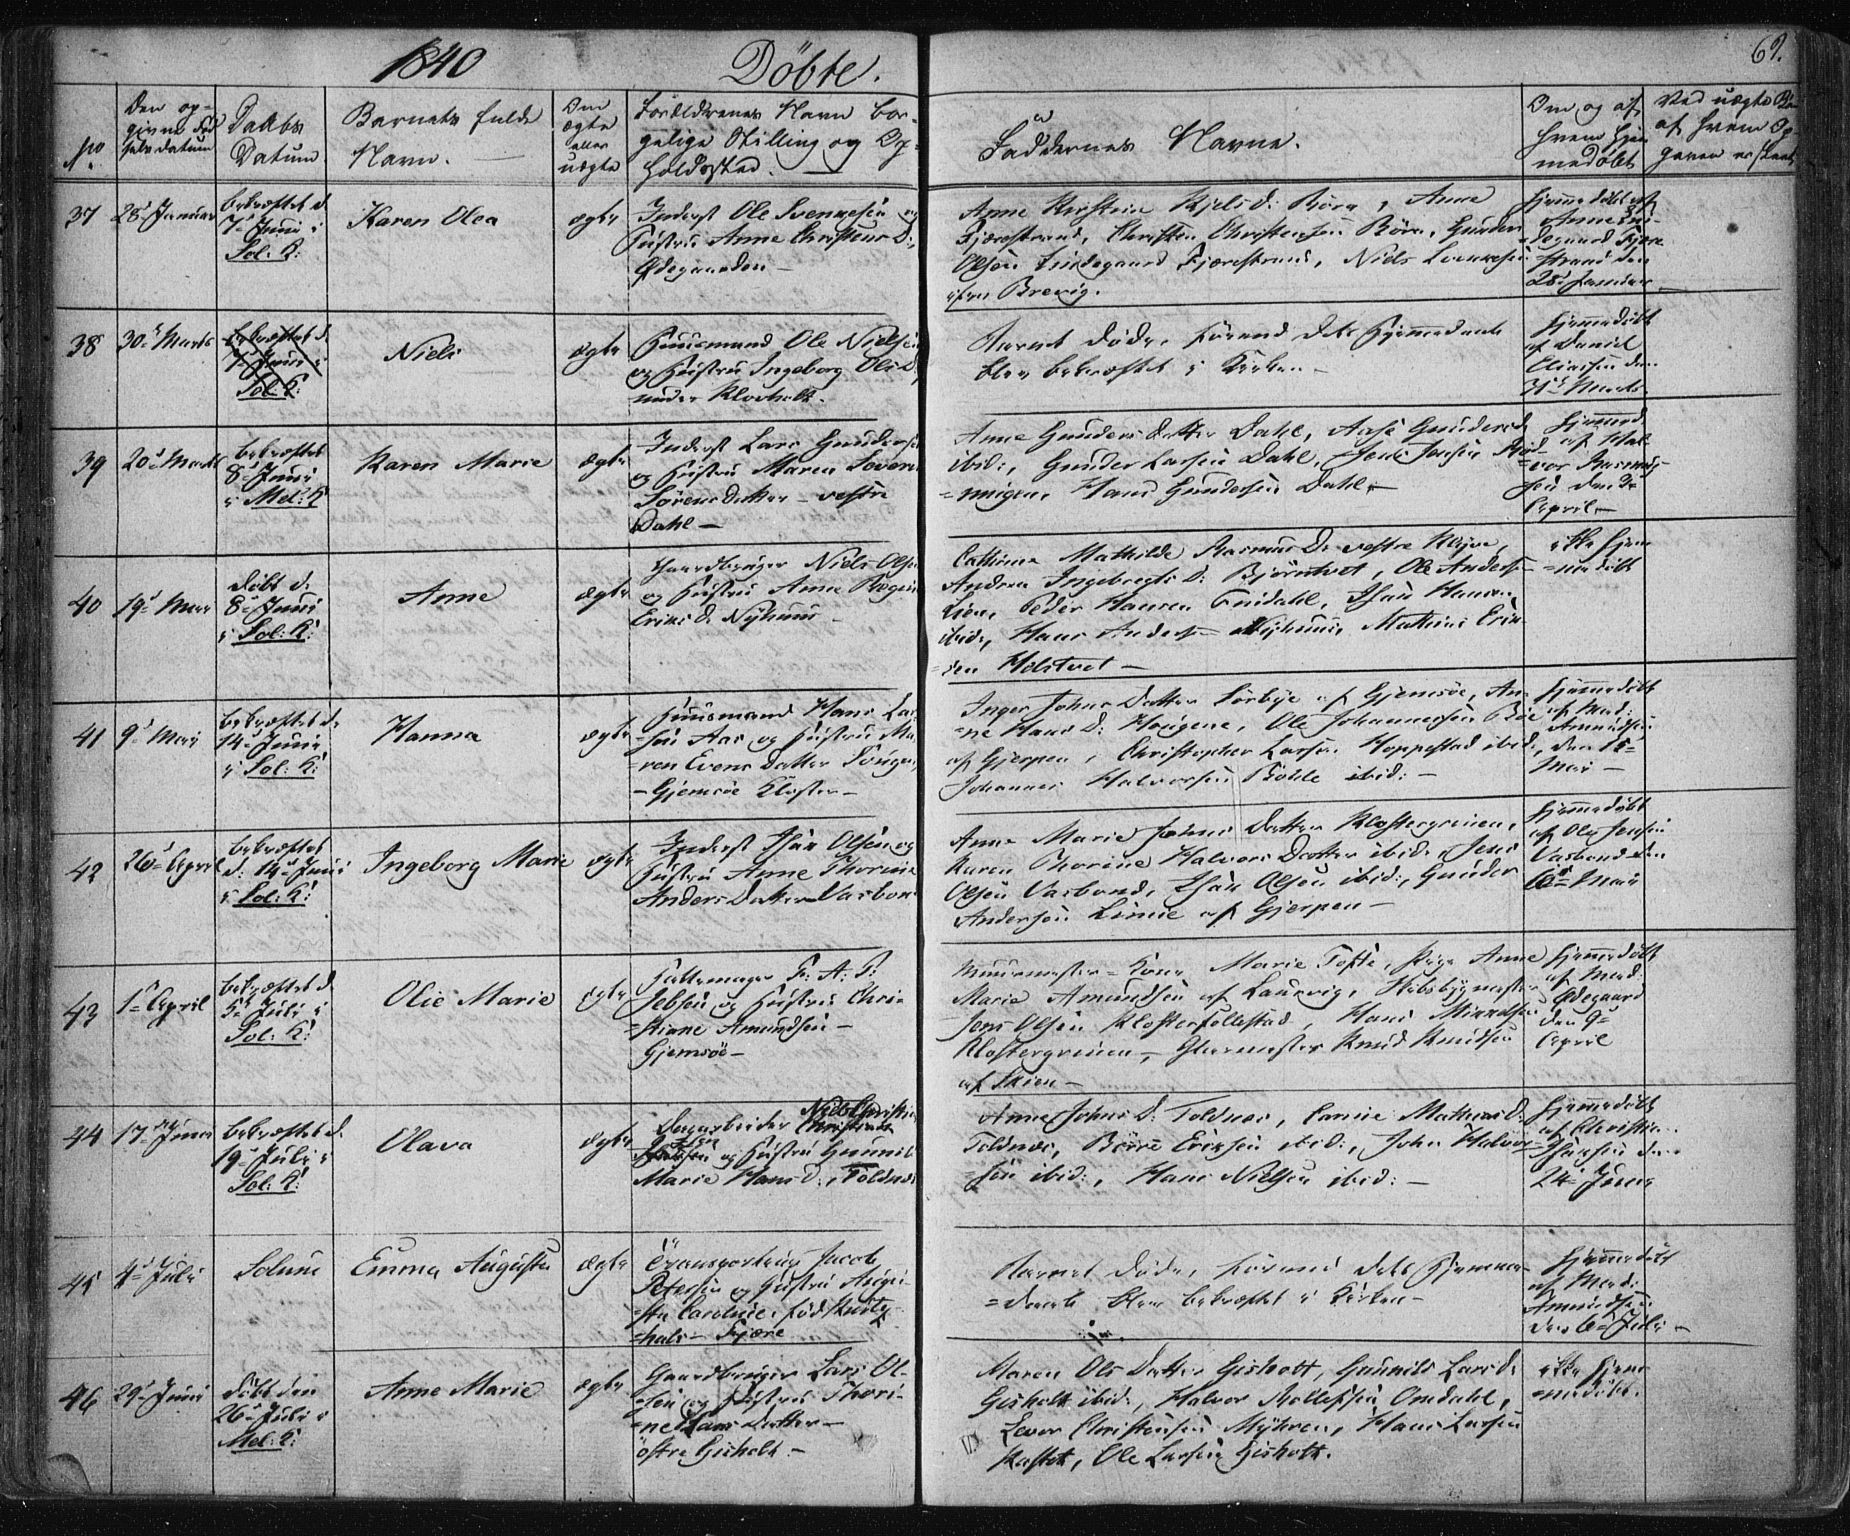 1840 Döbte. 69.
No.
Den op-
givne Fød
selsdatum
Daabs
Datum
Barnets fulde
Navn.
Om
ægte
eller
uægte
Forældrenes Navn bor-
gelige Stilling og Op-
holdssted.
Faddernes Navne.
Om og af
hvem hjem
medøbt
Ved uægte
af hvem Op-
gaven er skeet
37
28d Januar
bekræftet d.
7d Juni i
Sol: K:
Karen Olea
ægte
Inderst Ole Svennesen og
Hustru Anne Christens D:
Ødegaarden
Anne Kirstine Kjels D: Röra, Anne
Fjærestrand, Christen Christensen Röra, Gunder
Olsen Lindegaard Fjærestrand, Niels Svennesen
Brevig.
Hjemmedöbt af
Anne
Fjære
strand den
28d Januar
38
30d Marts
bekræftet d.
7d Juni i
Sol: K:
Niels
ægte
Huusmand Ole Nielsen
og Hustru Ingeborg Ols D.
under Klovholt.
Barnet døde, forend dets Hjemmedaab
blev bekræftet i Kirken
Hjemmedöbt
af Daniel
Eliasen den
31d Marts
39
20d Marts
bekræftet
8d Juni
i Mel: K
Karen Marie
ægte
Inderst Lars Gundersen
og Hustru Maren
Sörens Datter vestre
Dahl
Anne Gunders Datter Dahl, Aase Gunders D
ibid:, Gunder Larsen Dahl, Jens Jensen
Hans Gundersen Dahl
Hjemmed.
af Hal-
vor Rasmus-
sen den 3d
April
40
19d Mai
Döbt d.
8d Juni
i Sol: K:
Anne
ægte
Gaardbruger Niels Olsen
og Hustru Anne
Eriks D. Nyhuus
Cathrine Mathilde Rasmus D. vestre
Andrea Ingebregts D: Björntvet, Ole Anders-
Lien, Peder Hansen Hansen
ibid:, Hans Anders- Nyhuus, Mathias Erik
sen Holstvet
ikke hjem
medöbt
41
9d Mai
bekræftet d.
14d Juni
i Sol: K:
Hanna
ægte
Huusmand Hans Lar-
sen Aas og Hustru Ma-
ren Evens Datter
Gjemsöe Kloster
Inger Johns Datter Sörbye af Gjemsöe, An-
ne Hans D: Ole Johannesen Böe
af Gjerpen, Christopher Larsen Hoppestad ibid:,
Johannes Halvorsen Bölle ibid:
Hjemmedöbt
af Mad:
Amundsen
den 15d
Mai
42
26d April
bekræftet
d: 14d Juni
i Sol: K:
Ingeborg Marie
ægte
Inderst Isak Olsen og
Hustru Anne Thorine
Anders Datter Vasbond
Anne Marie Johns Datter Klostergrinen,
Karen Thorine Halvors Datter ibid:, Jens
Olsen Vasbond, Isak Olsen ibid:, Gunder
Andersen af Gjerpen
Hjemmedöbt
af Ole Jensen
Vasbond den
Mai
43
1d April
bekræftet d.
5d Juli i
Sol: K:
Olie Marie
ægte
Pottemager F: A: T:
Jebsen og Hustru Chri-
stiane Amundsen
Gjemsöe
Muurmester-Kone Marie Tofte, Pige Anne
Marie Amundsen af Laurvig, Skibsbygmester
Jens Olsen Klosterfollestad, Hans
Klostergrinen, Glarmester Knud Knudsen
af Skien
Hjemmedöbt
af Mad:
Ødegaard
den 9d
April
44
17d Juni
bekræftet d.
19d Juli i
Sol: K:
Olava
ægte
Dagarbeider Niels Christian
og Hustru Gunnil
Marie Hans D:, Toldnæs
Anne Johns D: Toldnæs, Mathias D:
Toldnæs, Börre Eriksen ibid:, John Halvor-
sen ibid:, Hans Nielsen ibid:
Hjemmedöbt
af Christian
Isaksen den
24d Juni
45
4d Juli
Solum
Emma Augusta
ægte
Jacob
Petersen og Hustru Augu-
sta Caroline, född
Fjære
Barnet døde, forend dets Hjemme-
daab blev bekræftet i Kirken
Hjemmedöbt
af Mad:
Amundsen
den 6d Juli
46
29d Juni
Döbt den
26d Juli i
Mel: K:
Anne Marie
ægte
Gaardbruger Lars Ol-
sen og Hustru Thori-
ne Lars Datter
östre Gisholt
Maren Ols Datter Gisholt, Gunnild Lars D.
Gisholt ibid:, Halvor Rollefsen Omdahl,
Lever Christensen Myhren, Hans Larsen
Ole Larsen Gisholt.
ikke hjem
medöbt.